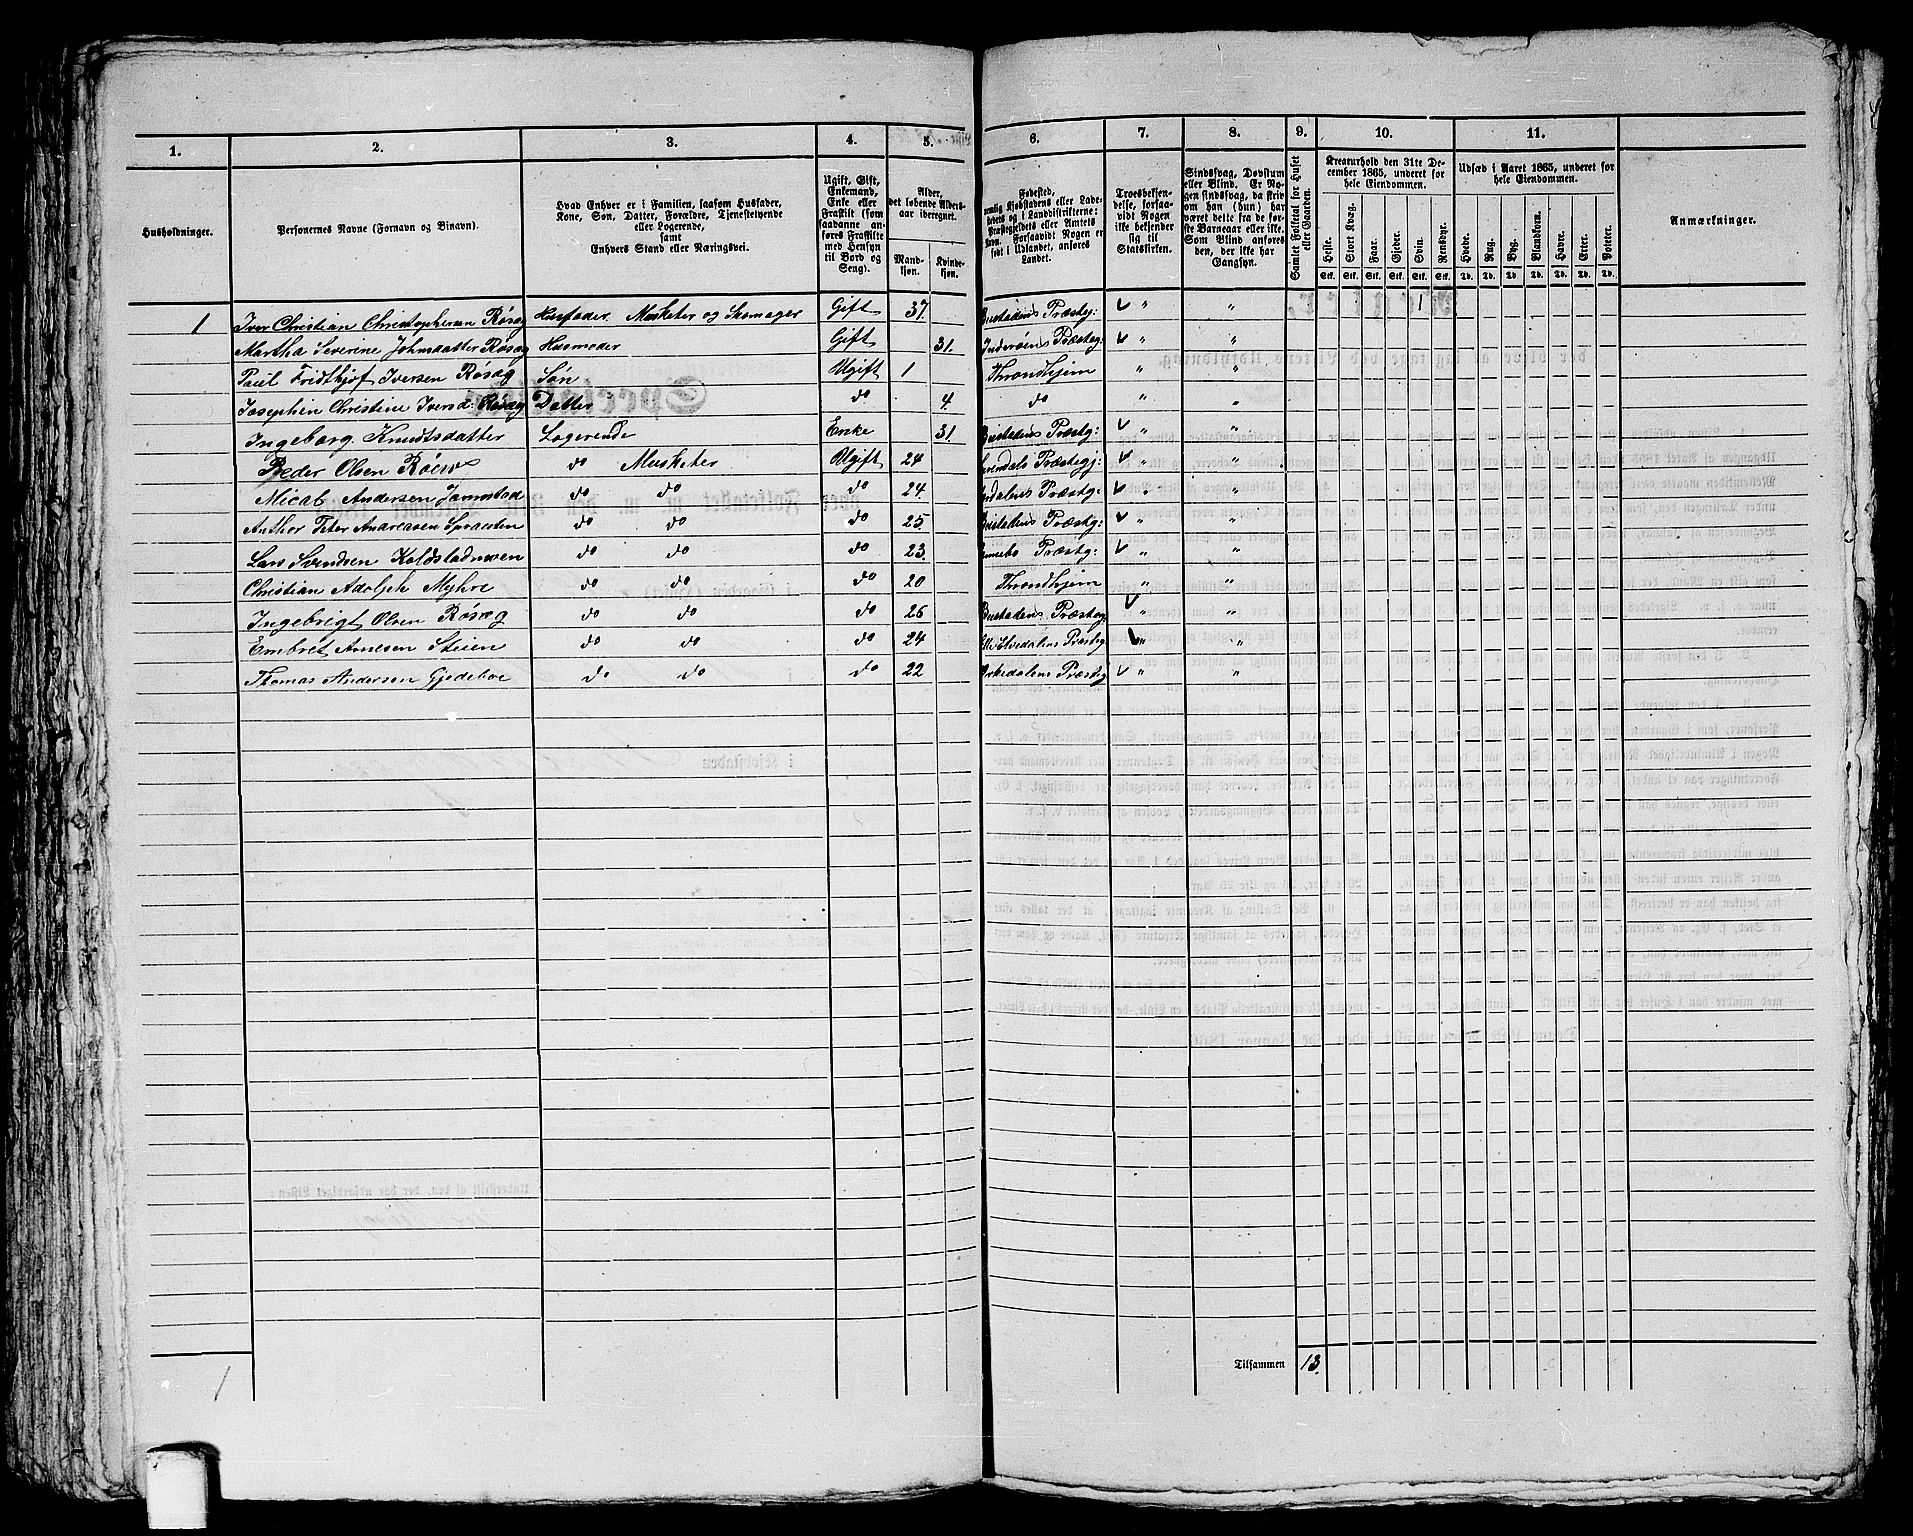 1. 2. 3. 4. 5. 6. 7. 8. 9. 10. 11.
Husholdninger.
Personernes Navne (Fornavn og Binavn).
Hvad Enhver er i Familien, saasom Husfader,
Kone, Søn, Datter, Forældre, Tjenestetyende
eller Logerende,
samt
Enhvers Stand eller Næringsvei.
Ugift, Gift,
Enkemand,
Enke eller
Fraskilt (som
saadanne an-
føres Fraskilte
med Hensyn
til Bord og
Seng).
Alder,
det løbende Alders-
aar iberegnet.
Mand-
kjøn.
Kvinde-
kjøn.
Fødested,
nemlig Kjøbstadens eller Lade-
stedets og i Landdistrikterne:
Præstegjeldets eller Amtets
Navn. Forsaavidt Nogen er
født i Udlandet, anføres
Landet.
Troesbekjen-
delse, forsaa-
vidt Nogen
ikke bekjender
sig til
Statskirken.
Sindssvag, Døvstum
eller Blind. Er No-
gen sindssvag, da skriv
om han (hun) har
været dette fra de før-
ste Barneaar eller ikke.
Som Blind anføres
den, der ikke har
Gangsyn.
Samlet Folketal for Huset
eller Gaarden.
Kreaturhold den 31te De-
cember 1865, underet for
hele Eiendommen.
Heste. Stort Kvæg. Faar. Gjeder. Svin. Rensdyr.
Stk. Stk. Stk. Stk. Stk. Stk.
Udsæd i Aaret 1865, underet for
hele Eiendommen.
Hvede. Rug. Byg. Blandkorn. Havre. Erter. Poteter.
Td. Td. Td. Td. Td. Td. Td.
Anmærkninger.
1 Iver Christian Christophersen Røsæg Husfader. Musketer og Skomager Gift 37. Beistadens Præstg: " " 1
Martha Severine Johnsdatter Røsæg Husmoder Gift 31. Inderøens Præstg: " "
Paul Fridthjof Iversen Røsæg Søn Ugift 1 Throndhjem " "
Josephin Christine Iversd: Røsæg Datter do 4. do " "
Ingeborg Knudtsdatter Logerende Enke 31. Beistadens Præstg: " "
Peder Olsen do Musketer Ugift 24 Præstegj: " "
Micael Andersen do do do 24. Præstg: "
Anthor Peter Andreassen do do do 25. Beistadens Præstg: " "
Lars Svendsen do do do 23. Præstg: " "
Christian Adolph Myhre do do do 20 Throndhjem " "
Ingebrigt Olsen Røsæg do do do 26 Beistadens Præstg " "
Embret Arnesen Steien do do do 24 Præstg " "
Thomas Andersen Gjedeboe do do do 22 Orkedalens Præstg " "
Tilsammen 13.
1